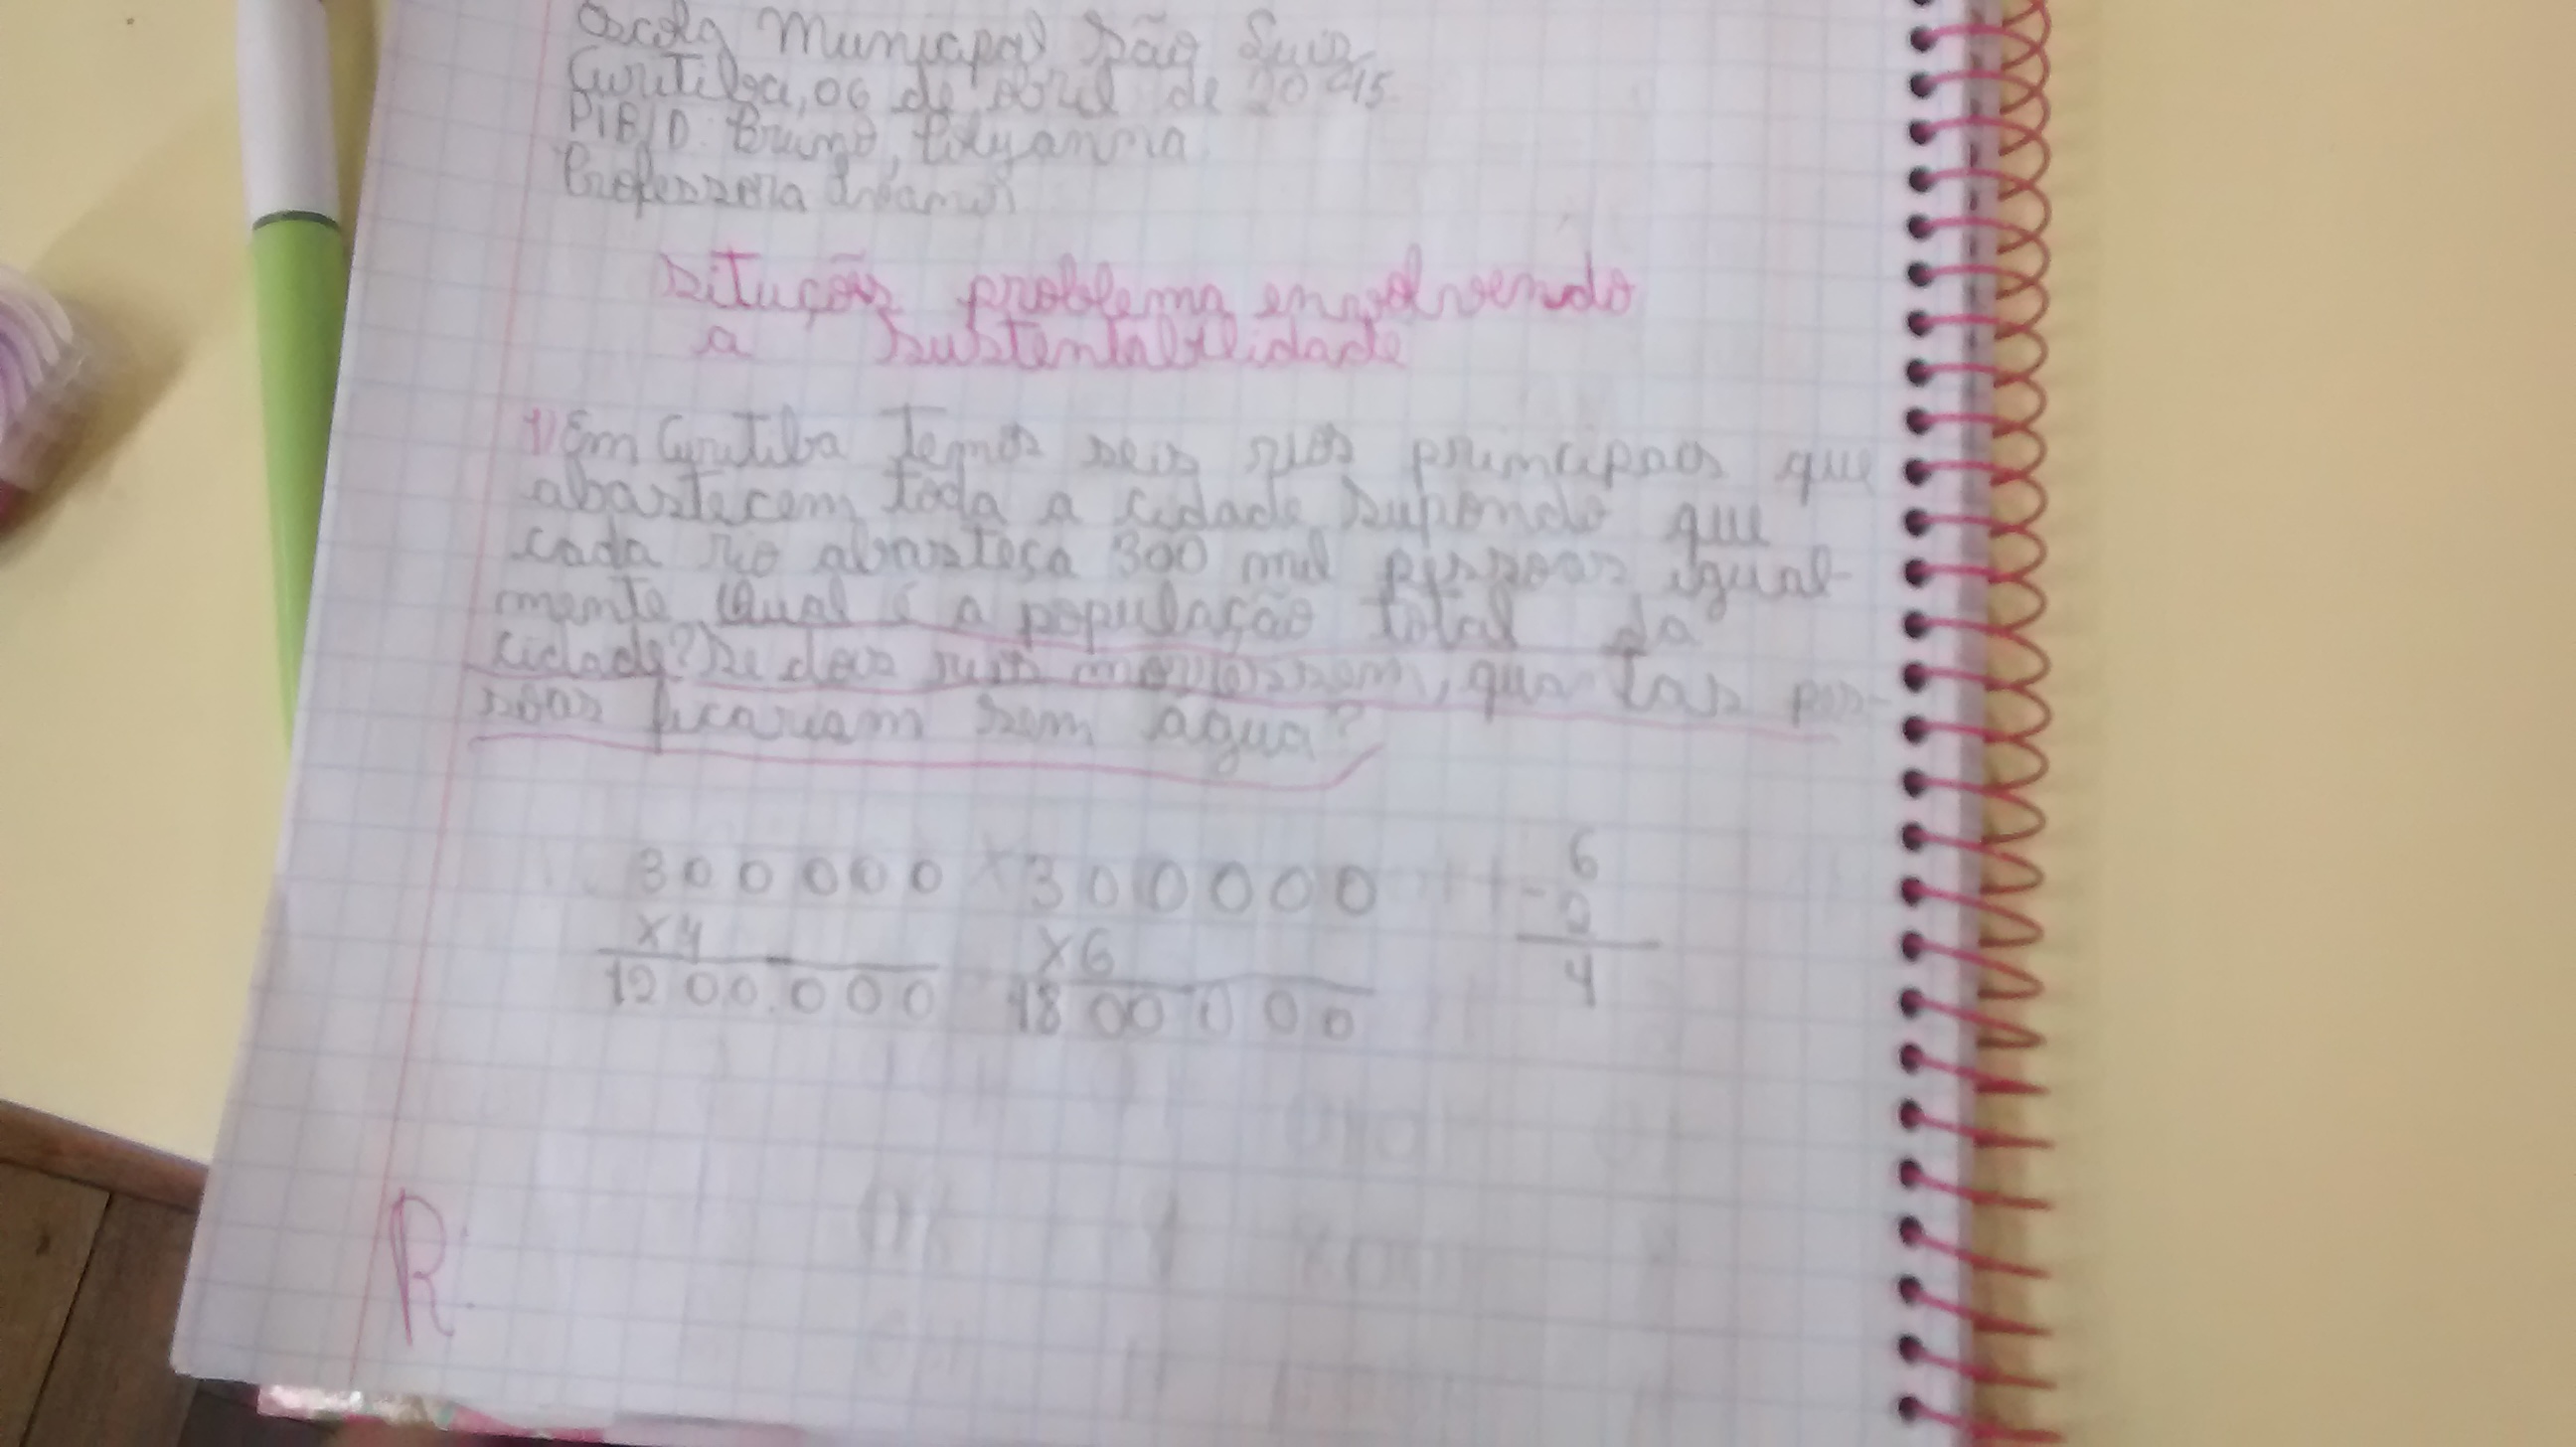 Escola Municipal São Luis
Curitiba, 06 de abril de 2015
PIBID: Bruno, Polyanna
Professora
Situções problema envolvendo
a sustentabilidade
1) Em Curitiba temos seis rios principaos que
abastecem toda a cidade supondo que
cada rio abasteça 300 mil pessoas igual-
mente. Qual é a população total da
cidade? Se dois rios morressem, quantas pes-
soas ficariam sem água?
300000 x 300000 6
x4 x6 - 2
1200.000 1800000 4
R: